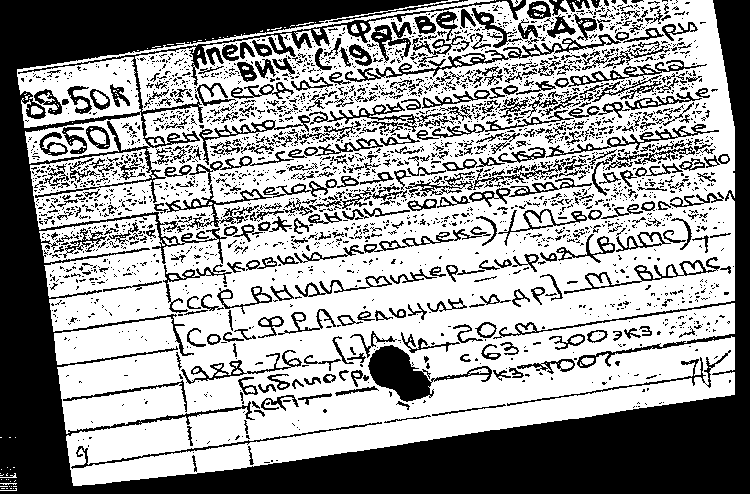 Апельцин, Файвель Рахми-
вич (1917-1982) и др.
89-50К
6501
Методические указания по при-
менению рационального комплекса
геолого-геохимических и геофизиче-
ских методов при поисках и оценке
месторождений вольфрама (прогнозно
поисковый комплекс) / М-во геологии
СССР, ВНИИ минер. сырья (ВИМС);
[Сост. Ф. Р. Апельцин и др.] - М.: ВИМС,
1988. - 76 с., [1] л. ил.; 20 см.
Библиогр. с. 63. - 300 экз.
деп. Экз. №007.